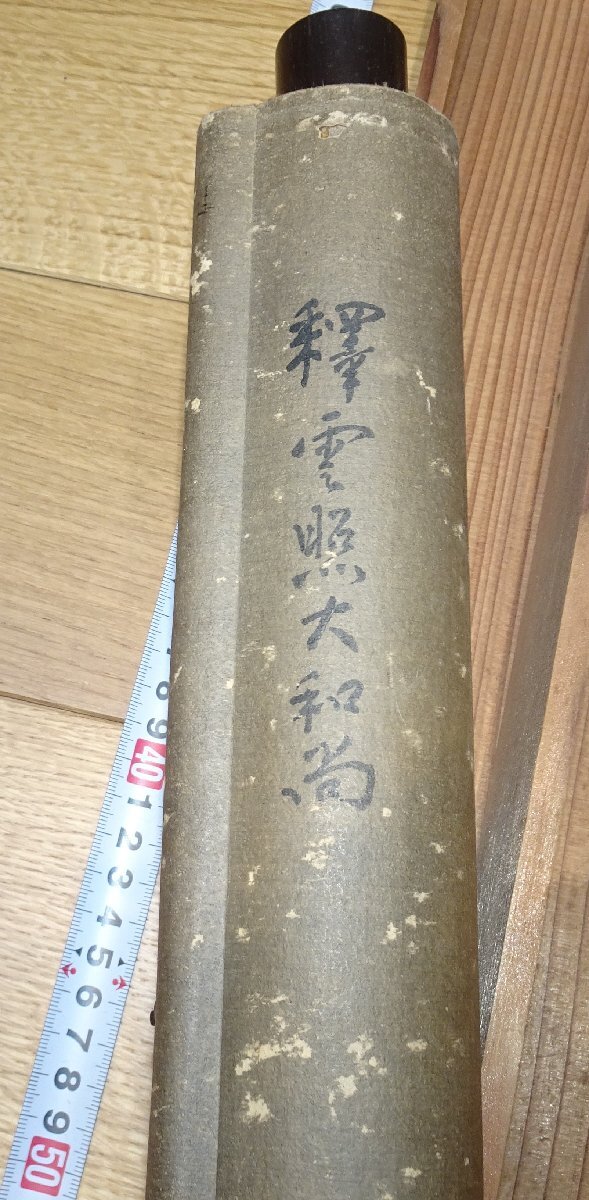 釋雲照大和尚
8
9
40
1
2
3
4
5
6
7
8
9
50